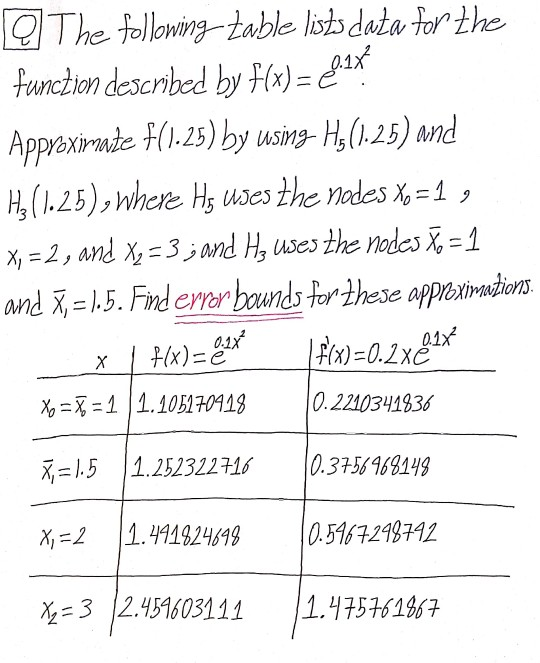 Q The following table lists data for the
function described by f(x) = e^0.1x².
Approximate f(1.25) by using H₅(1.25) and
H₃(1.25), where H₅ uses the nodes x₀ = 1 ,
x₁ = 2, and x₂ = 3 ; and H₃ uses the nodes x̄₀ = 1
and x̄₁ = 1.5. Find error bounds for these approximations.
x | f(x) = e^0.1x² | f'(x) = 0.2xe^0.1x²
x₀ = x̄₀ = 1 | 1.105170918 | 0.2210341836
x̄₁ = 1.5 | 1.252322716 | 0.3756968148
x₁ = 2 | 1.491824698 | 0.5967298792
x₂ = 3 | 2.459603111 | 1.475761867